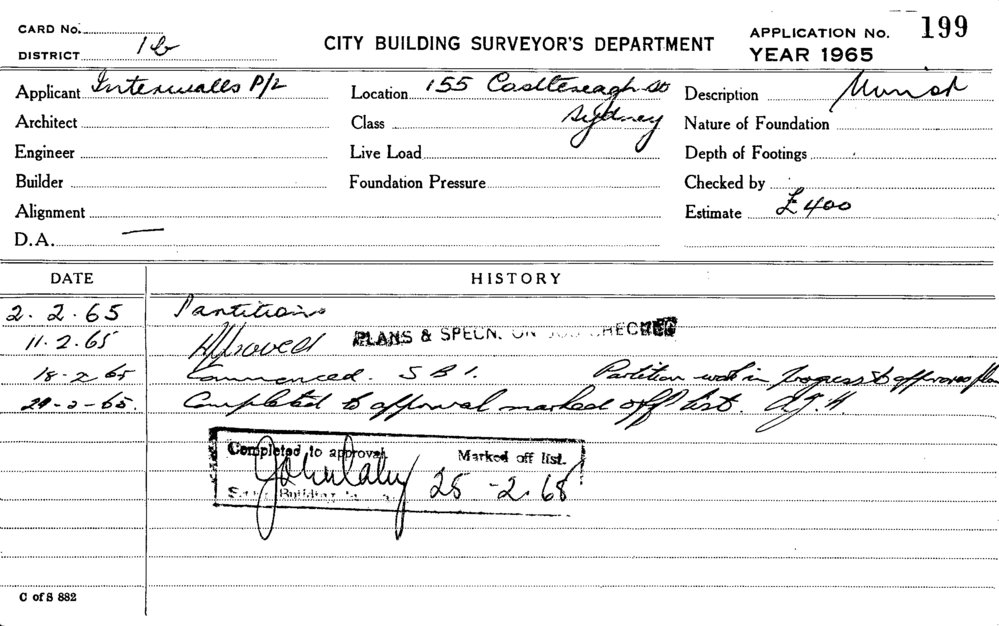 CARD No.
DISTRICT 1b
CITY BUILDING SURVEYOR'S DEPARTMENT
APPLICATION No. 199
YEAR 1965
Applicant Interwalls P/L
Location 155 Castlereagh St
Sydney
Description
Architect
Class
Nature of Foundation
Engineer
Live Load
Depth of Footings
Builder
Foundation Pressure
Checked by
Alignment
Estimate £400
D.A. —
DATE HISTORY
2.2.65 Partitions
11.2.65 Approved PLANS & SPECN. ON JOB CHECKED
18-2-65 Commenced. S B I. Partition work in progress to approved plan
24-2-65. Completed to approval marked off list.
Completed to approval Marked off list.
25-2.65
Building
C of S 882